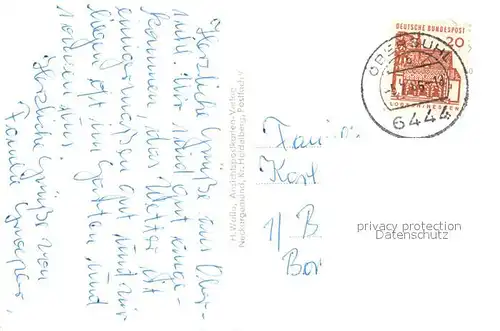 Herzliche Grüße aus Ober-
suhl. Wir sind gut ange-
kommen, das Wetter ist
einigermaßen gut und wir
liegen oft im Garten und
Herzliche Grüße von
Familie
H. Weiler, Ansichtspostkarten-Verlag
Neckargemünd, Kr. Heidelberg, Postfach
DEUTSCHE BUNDESPOST
20
LORSCH/HESSEN
OBERSUHL
6444
Karl
1/ B
Bor
privacy protection
Datenschutz